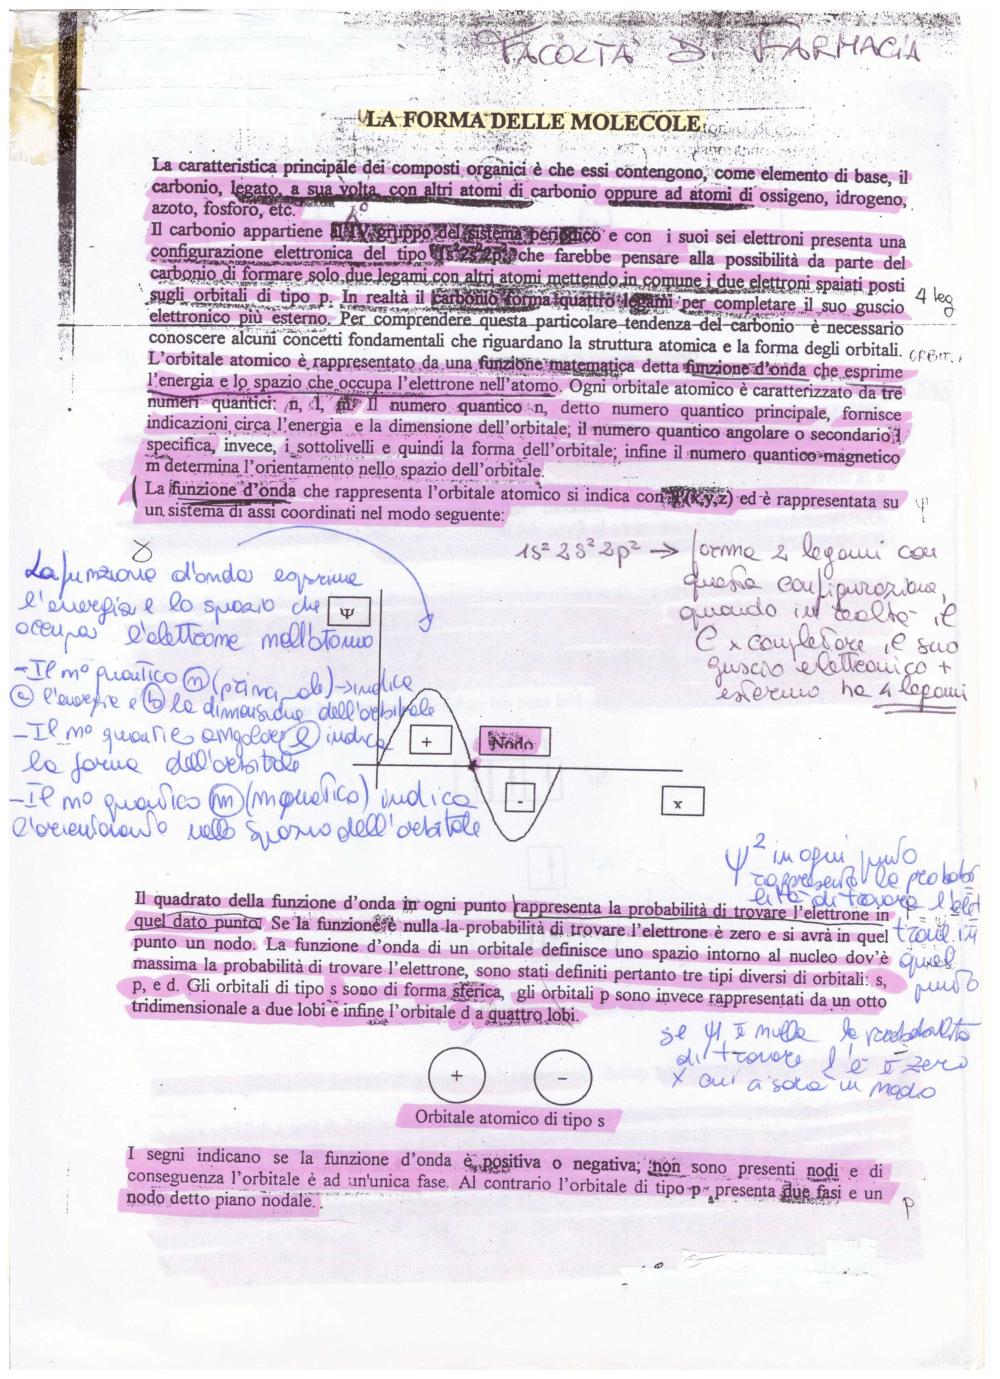 FACOLTA' DI FARMACIA
LA FORMA DELLE MOLECOLE
La caratteristica principale dei composti organici è che essi contengono, come elemento di base, il
carbonio, legato, a sua volta, con altri atomi di carbonio oppure ad atomi di ossigeno, idrogeno,
azoto, fosforo, etc.
Il carbonio appartiene al IV gruppo del sistema periodico e con i suoi sei elettroni presenta una
configurazione elettronica del tipo 1s²2s²2p² che farebbe pensare alla possibilità da parte del
carbonio di formare solo due legami con altri atomi mettendo in comune i due elettroni spaiati posti
sugli orbitali di tipo p. In realtà il carbonio forma quattro legami per completare il suo guscio
4 leg
elettronico più esterno. Per comprendere questa particolare tendenza del carbonio è necessario
conoscere alcuni concetti fondamentali che riguardano la struttura atomica e la forma degli orbitali.
ORBIT.
L'orbitale atomico è rappresentato da una funzione matematica detta funzione d'onda che esprime
l'energia e lo spazio che occupa l'elettrone nell'atomo. Ogni orbitale atomico è caratterizzato da tre
numeri quantici: n, l, m. Il numero quantico n, detto numero quantico principale, fornisce
indicazioni circa l'energia e la dimensione dell'orbitale; il numero quantico angolare o secondario l
specifica, invece, i sottolivelli e quindi la forma dell'orbitale; infine il numero quantico magnetico
m determina l'orientamento nello spazio dell'orbitale.
La funzione d'onda che rappresenta l'orbitale atomico si indica con Ψ(x,y,z) ed è rappresentata su
Ψ
un sistema di assi coordinati nel modo seguente:
1s² 2s² 2p² → forma 2 legami con
questa configurazione,
quando in realtà il
C x completare il suo
guscio elettronico +
esterno ha 4 legami
La funzione d'onda esprime
l'energia e lo spazio che
occupa l'elettrone nell'atomo
- Il n° quantico n (principale) → indica
a l'energia e b la dimensione dell'orbitale
- Il n° quantico angolare l indica
la forma dell'orbitale
- Il n° quantico m (magnetico) indica
l'orientamento nello spazio dell'orbitale
Ψ
+
Nodo
-
x
Ψ² in ogni punto
rappresenta la probabi
lità di trovare l'elet
trone in
quel
punto
Il quadrato della funzione d'onda in ogni punto rappresenta la probabilità di trovare l'elettrone in
quel dato punto. Se la funzione è nulla la probabilità di trovare l'elettrone è zero e si avrà in quel
punto un nodo. La funzione d'onda di un orbitale definisce uno spazio intorno al nucleo dov'è
massima la probabilità di trovare l'elettrone, sono stati definiti pertanto tre tipi diversi di orbitali: s,
p, e d. Gli orbitali di tipo s sono di forma sferica, gli orbitali p sono invece rappresentati da un otto
tridimensionale a due lobi e infine l'orbitale d a quattro lobi.
se Ψ è nulla la probabilità
di trovare l'e⁻ è zero
x cui ci sarà un nodo
+
-
Orbitale atomico di tipo s
I segni indicano se la funzione d'onda è positiva o negativa; non sono presenti nodi e di
conseguenza l'orbitale è ad un'unica fase. Al contrario l'orbitale di tipo p presenta due fasi e un
nodo detto piano nodale.
p